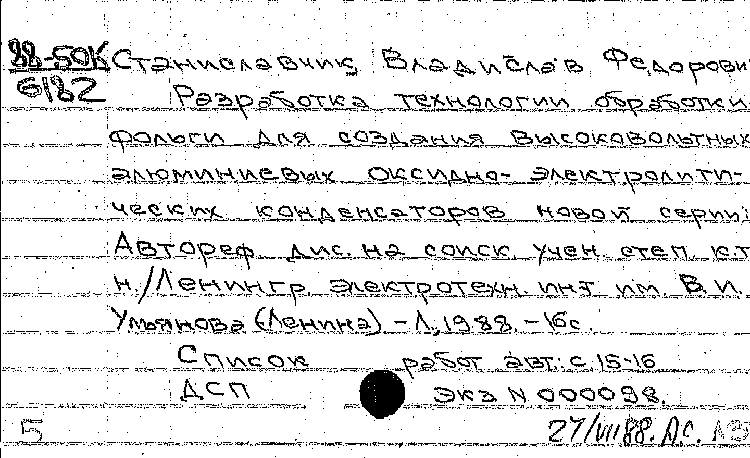 88-5ОК Станиславчик, Владислав Федорови
6182 Разработка технологии обработки
фольги для создания высоковольтных
алюминиевых оксидно-электролити-
ческих конденсаторов новой серии:
Автореф. дис. на соиск. учен. степ. к.т.
н./Ленингр. электротехн. ин-т им. В.И.
Ульянова (Ленина). – Л., 1988. – 16с.
Список работ авт.: с. 15-16
ДСП Экз N 000098.
5 27/VII 88. А.С.